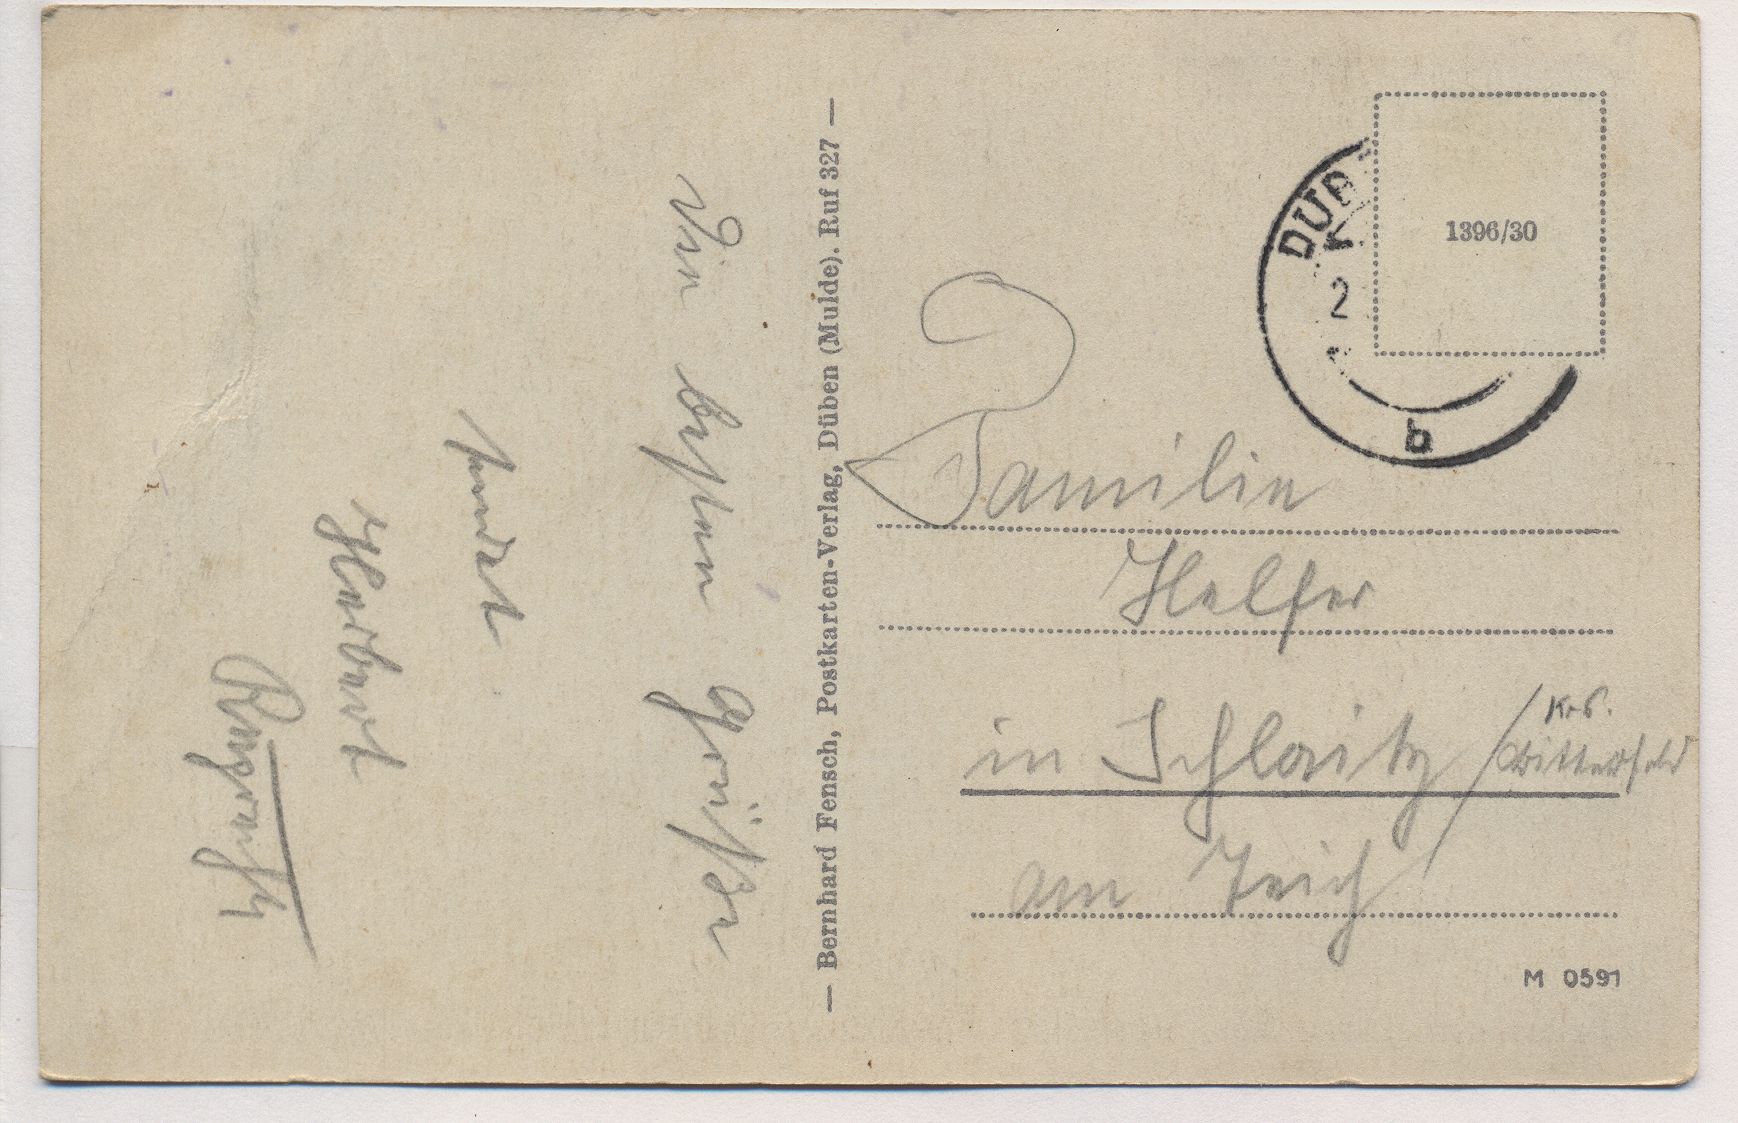 Die besten Grüße
sendet
Herbert
— Bernhard Fensch, Postkarten-Verlag, Düben (Mulde). Ruf 327 —
DÜB
2
b
1396/30
Familie
Helfer
in Schlaitz / Krs. Bitterfeld
am Teich
M 0591